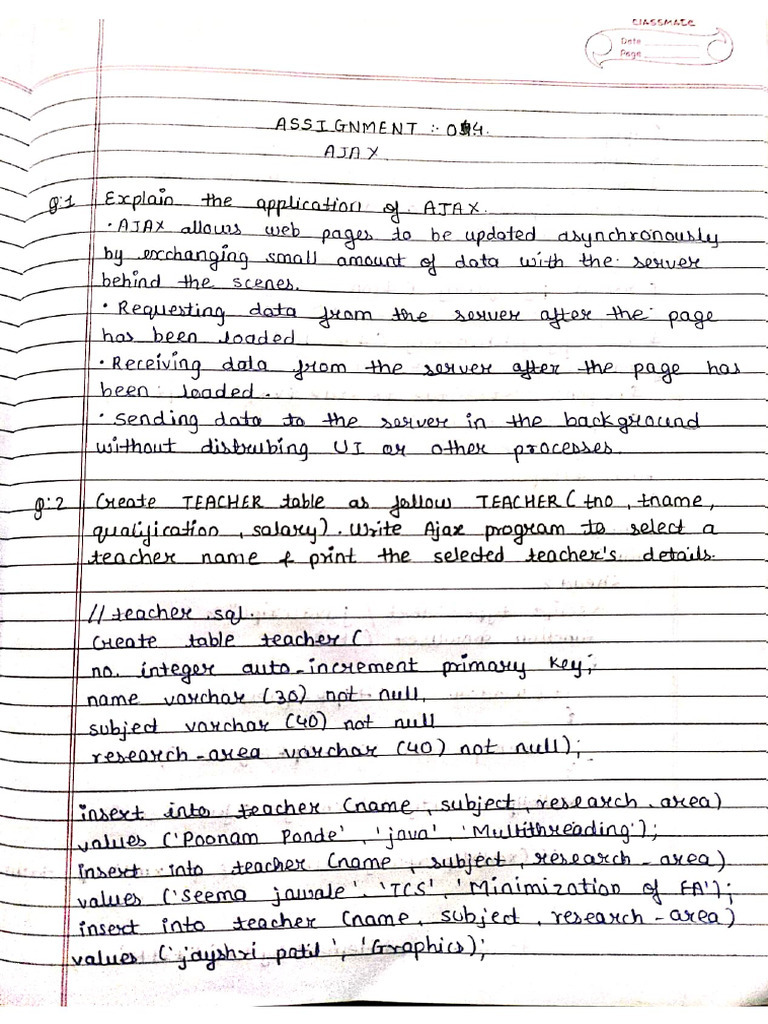 classmate
Date
Page
ASSIGNMENT :- 04.
AJAX
Q:1 Explain the application of AJAX.
• AJAX allows web pages to be updated asynchronously
by exchanging small amount of data with the server
behind the scenes.
• Requesting data from the server after the page
has been loaded
• Receiving data from the server after the page has
been loaded.
• Sending data to the server in the background
without distrubing UI or other processes.
Q:2 Create TEACHER table as follow TEACHER ( tno , tname ,
qualification , salary ) . Write Ajax program to select a
teacher name & print the selected teacher's details.
// teacher .sql.
Create table teacher (
no. integer auto-increment primary key;
name varchar (30) not null,
subject varchar (40) not null
research-area varchar (40) not null);
insert into teacher (name , subject , research-area)
values ('Poonam Ponde' , 'java' , 'Multithreading');
insert into teacher (name , subject , research-area)
values ('Seema jawale' , 'TCS' , 'Minimization of FA');
insert into teacher (name , subject , research-area)
values ('jayshri patil' , 'Graphics);